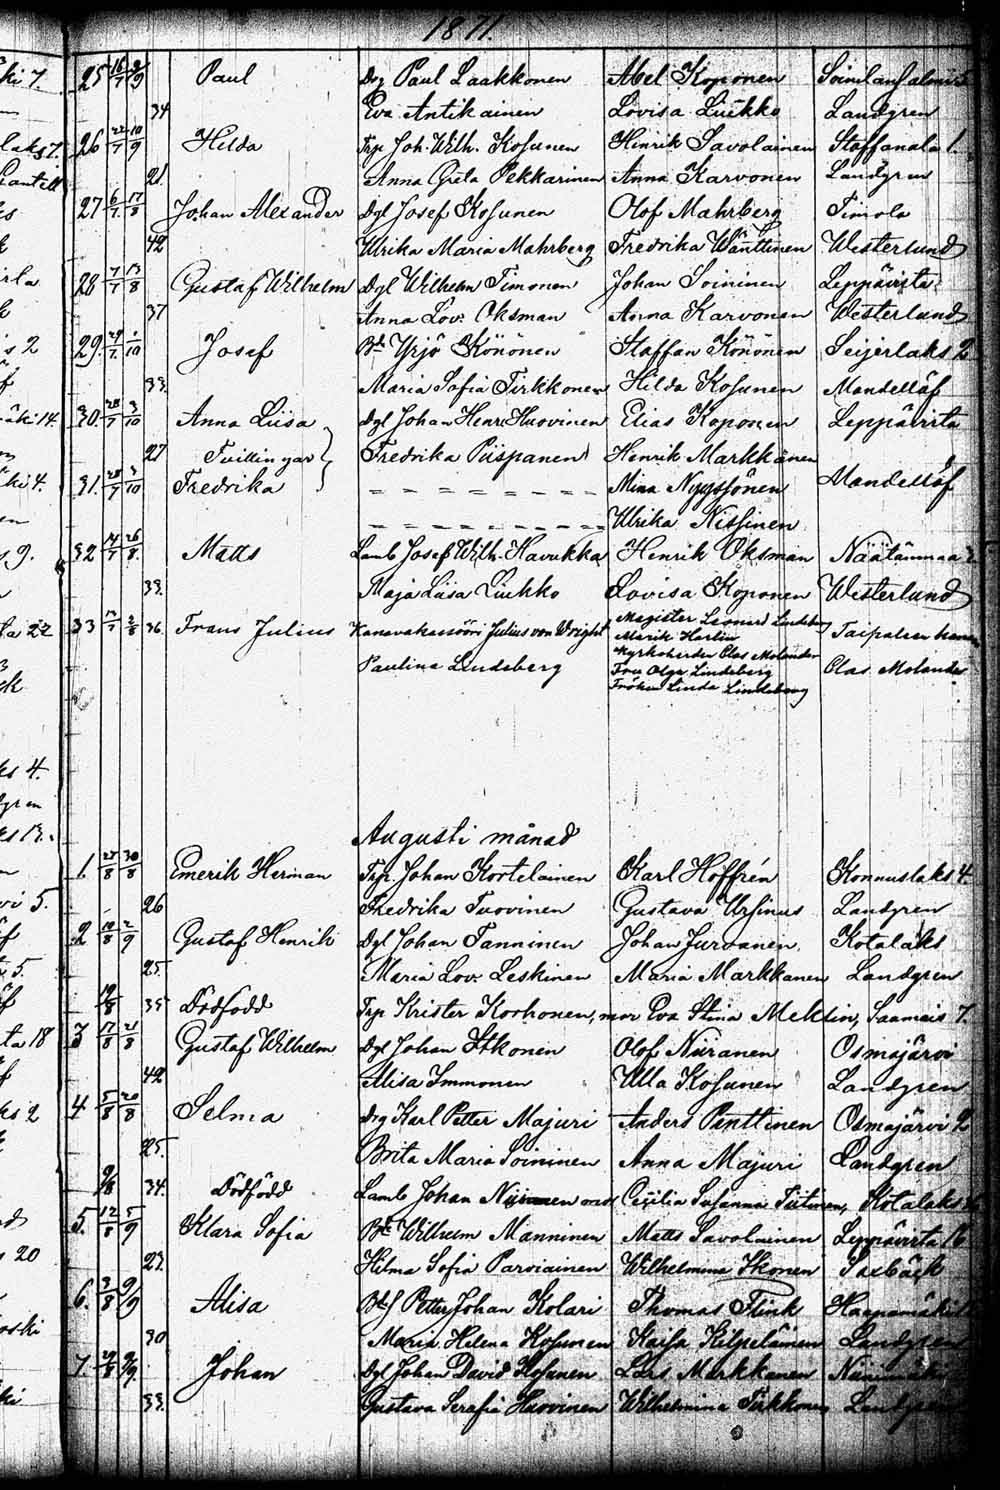 1871.
25 16/7 2/9 Paul Drg Paul Laakkonen Abel Koponen Soinilansalmi 5
34 Eva Antikainen Lovisa Liukko Landgren
26 22/7 10/9 Hilda Trp Joh. Wilh. Kosunen Hinrik Savolainen Staffanala 1.
21. Anna Greta Pekkarinen Anna Karvonen Landgren
27 6/7 17/8 Johan Alexander Dgl Josef Kosunen Olof Mahrberg Timola
42 Ulrika Maria Mahrberg Fredrika Wänttinen Westerlund
28 7/7 13/8 Gustaf Wilhelm Dgl Wilhelm Timonen Johan Soininen Leppävirta
37 Anna Lov. Oksman Anna Karvonen Westerlund
29. 29/7 1/10 Josef Bd Yrjö Könönen Staffan Könönen Seijerlaks 2
33. Maria Sofia Tirkkonen Hilda Kosunen Mandellöf
30. 28/7 3/10 Anna Liisa Dgl Johan Henr. Huovinen Elias Koponen Leppävirta
27 Tvillingar Fredrika Piispanen Henrik Markkanen
31. 28/7 3/10 Fredrika Mina Nyyssönen Mandellöf
Ulrika Nissinen
32 26/8 Matts Lamb Josef Wilh. Havukka Henrik Oksman Näätänmaa
33. Maja Liisa Liukko Lovisa Koponen Westerlund
33 2/8 36. Frans Julius Kanavakassööri Julius von Wright Magister Leonard Lindeberg Taipaleen
Marik Harlin
Paulina Lindeberg Kyrkoherder Clas Molander Clas Molander
Fru Olga Lindeberg
Fröken Linda Lindeberg
Augusti månad
1. 25/8 30/8 Emerik Herman Trp. Johan Kortelainen Karl Hoffrén Konnuslaks 4.
26 Fredrika Tuovinen Gustava Ursinus Landgren
2 10/8 2/9 Gustaf Henrik Dgl Johan Tanninen Johan Jurvanen Kotalaks
25. Maria Lov. Leskinen Maria Markkanen Landgren
19/8 35 Dödfödd Trp Krister Korhonen, mor Eva Stina Meklin, Saamais 7.
3 17/8 21/8 Gustaf Wilhelm Dgl Johan Itkonen Olof Niiranen Osmajärvi
42 Alisa Immonen Ulla Kosunen Landgren
4 5/8 20/8 Selma Drg Karl Petter Majuri Anders Penttinen Osmajärvi 2
25. Brita Maria Soininen Anna Majuri Landgren
9/8 34. Dödfödd Lamb Johan Niiranen och Cecilia Susanna Tiitinen, Kotalaks
5. 12/8 5/9 Klara Sofia Bd Wilhelm Manninen Matts Savolainen Leppävirta 16
23. Hilma Sofia Parviainen Wilhelmina Ikonen Saxbäck
6. 3/8 9/9 Alisa Bd Petter Johan Kolari Thomas Flink Haapamäki
30 Maria Helena Kosunen Kaisa Kilpeläinen Landgren
7. 29/8 9/9 Johan Dgl Johan David Kosunen Lars Markkanen Niinimäki
33. Gustava Serafia Huovinen Wilhelmina Tirkkonen Landgren